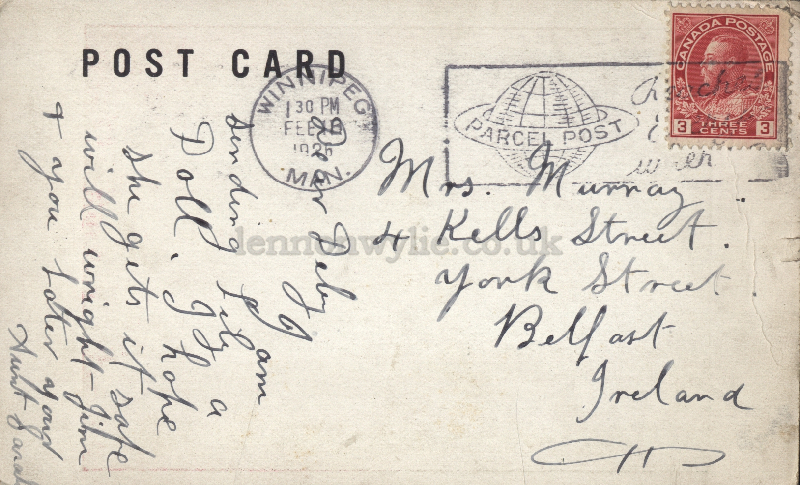 POST CARD
WINNIPEG
1 30 PM
FEB
MAN.
PARCEL POST
CANADA POSTAGE
3 THREE CENTS 3
Mrs. Murray
4 Kells Street.
York Street.
Belfast
Ireland
Dear
I am
sending Lily a
Doll. I hope
she gets it safe
will wright - Jim
& you later your
Aunt Sarah
lennonwylie.co.uk